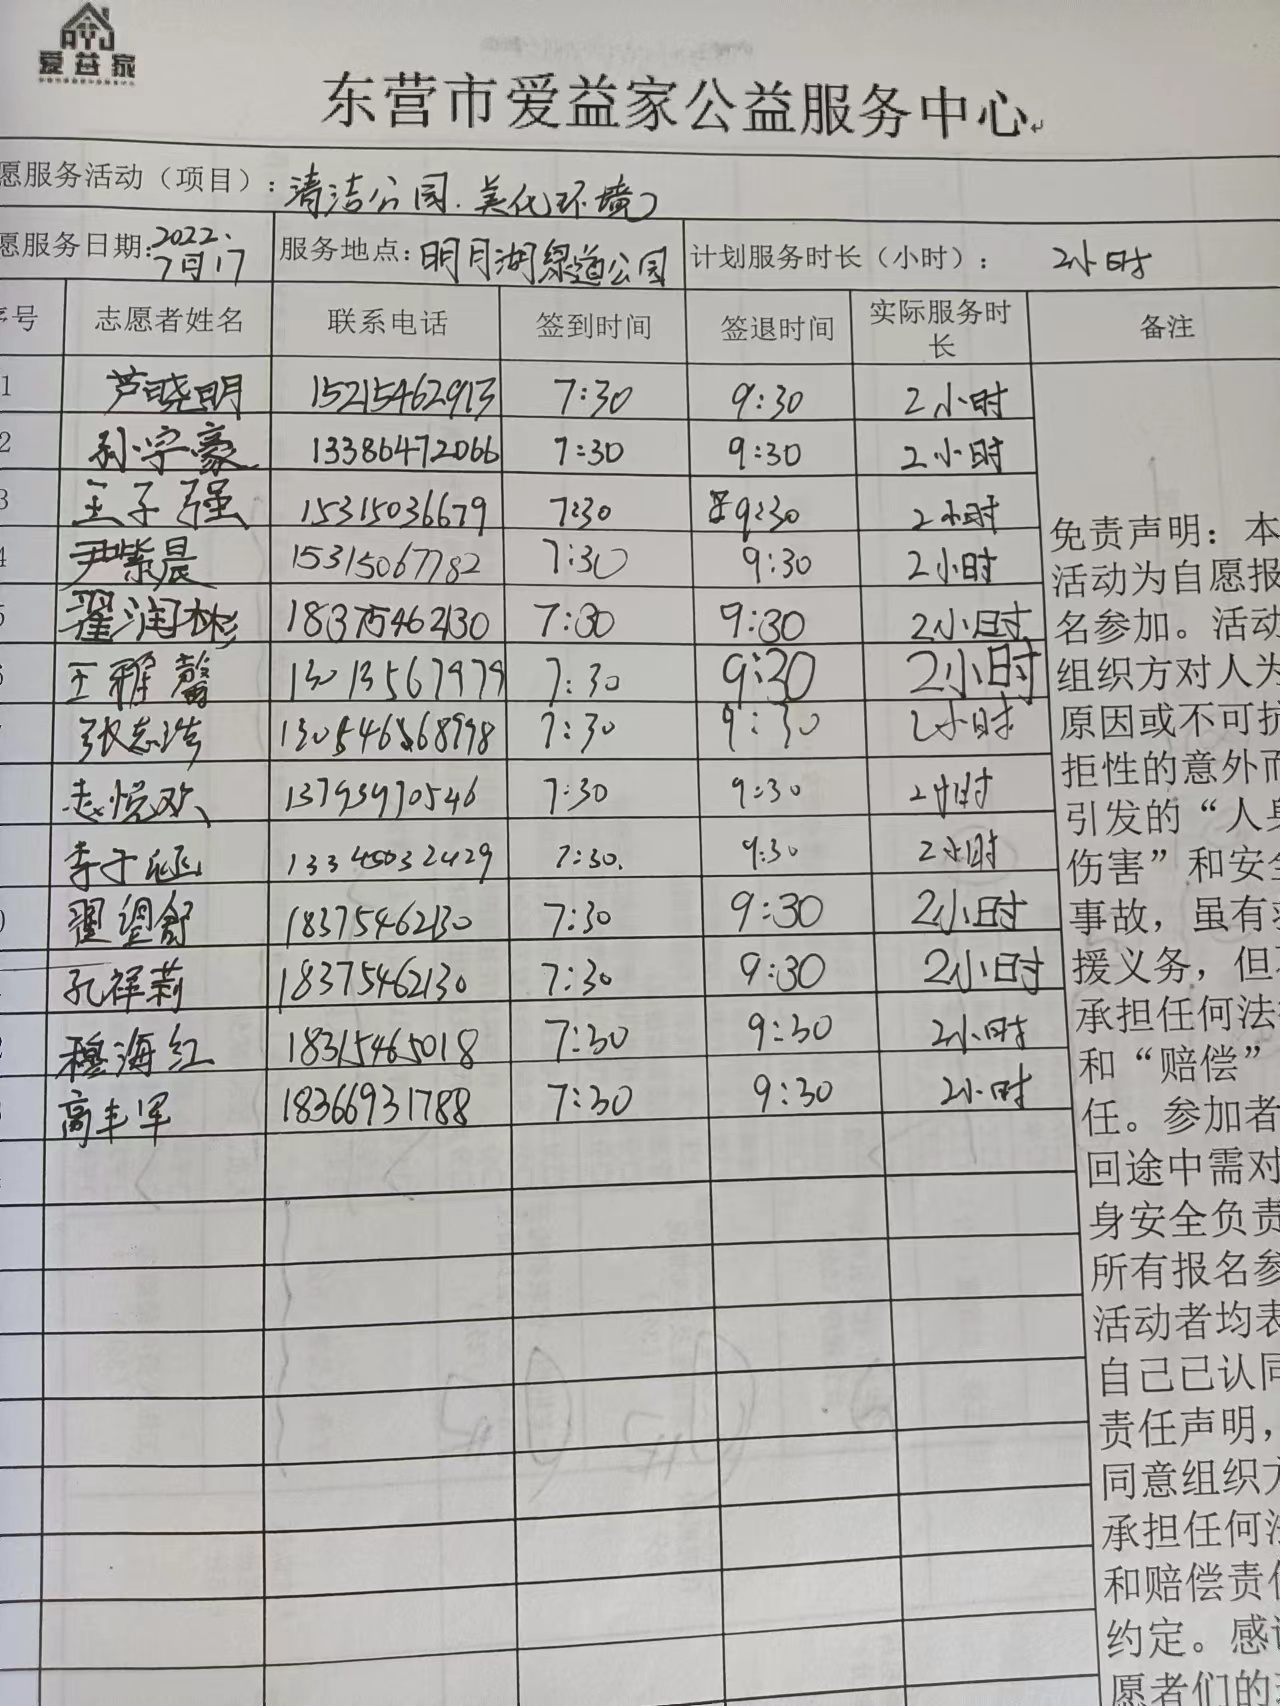 爱益家
东营市爱益家公益服务中心
愿服务活动（项目）：清洁公园.美化环境
愿服务日期:2022.7月17 服务地点:明月湖绿道公园 计划服务时长（小时）： 2小时
序号 志愿者姓名 联系电话 签到时间 签退时间 实际服务时长 备注
1 芦晓明 15215462913 7:30 9:30 2小时
2 孙宇豪 13386472066 7:30 9:30 2小时
3 王子强 15315036679 7:30 9:30 2小时
4 尹紫晨 15315067782 7:30 9:30 2小时
5 翟润彬 18375462130 7:30 9:30 2小时
6 王雅馨 13013567979 7:30 9:30 2小时
张志浩 7:30 9:30 2小时
悦欢 13793970546 7:30 9:30 2小时
李于涵 13345032429 7:30. 9:30 2小时
0 翟望舒 18375462130 7:30 9:30 2小时
孔祥莉 18375462130 7:30 9:30 2小时
2 穆海红 18315465018 7:30 9:30 2小时
3 高丰军 18366931788 7:30 9:30 2小时
免责声明：本
活动为自愿报
名参加。活动
组织方对人为
原因或不可抗
拒性的意外而
引发的“人身
伤害”和安全
事故，虽有救
援义务，但不
承担任何法律
和“赔偿”
任。参加者
回途中需对
身安全负责
所有报名参
活动者均表
自己已认同
责任声明，
同意组织方
承担任何法
和赔偿责任
约定。感谢
愿者们的